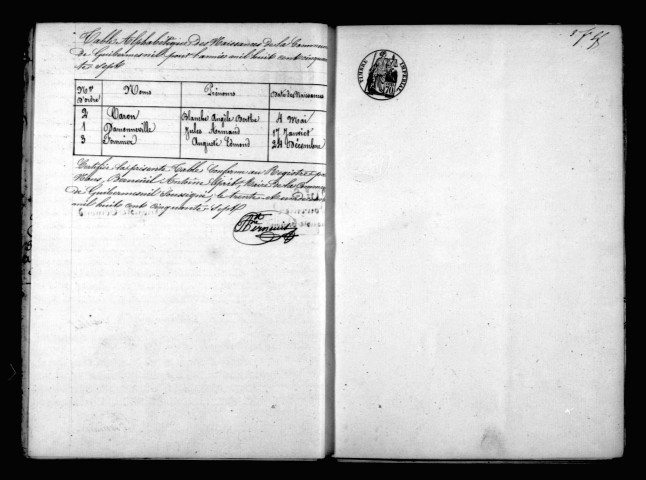 Table Alphabétique des Naissances de la Commune
de Guibermesnil pour l'année mil huit cent cinquan
te Sept
Nos d'ordre Noms Prénoms Date des Naissances
2 Caron Blanche Angèle Berthe 4 Mai
1 Damonneville Jules Armand 17 Janvier
3 Pommier Auguste Edmond 24 Décembre
Certifié la présente Table Conforme au Registre par
Nous, Antoine Maire de la Commune
de Guibermesnil Soussigné, le trente et un
mil huit cent cinquante Sept
TIMBRE IMPÉRIAL